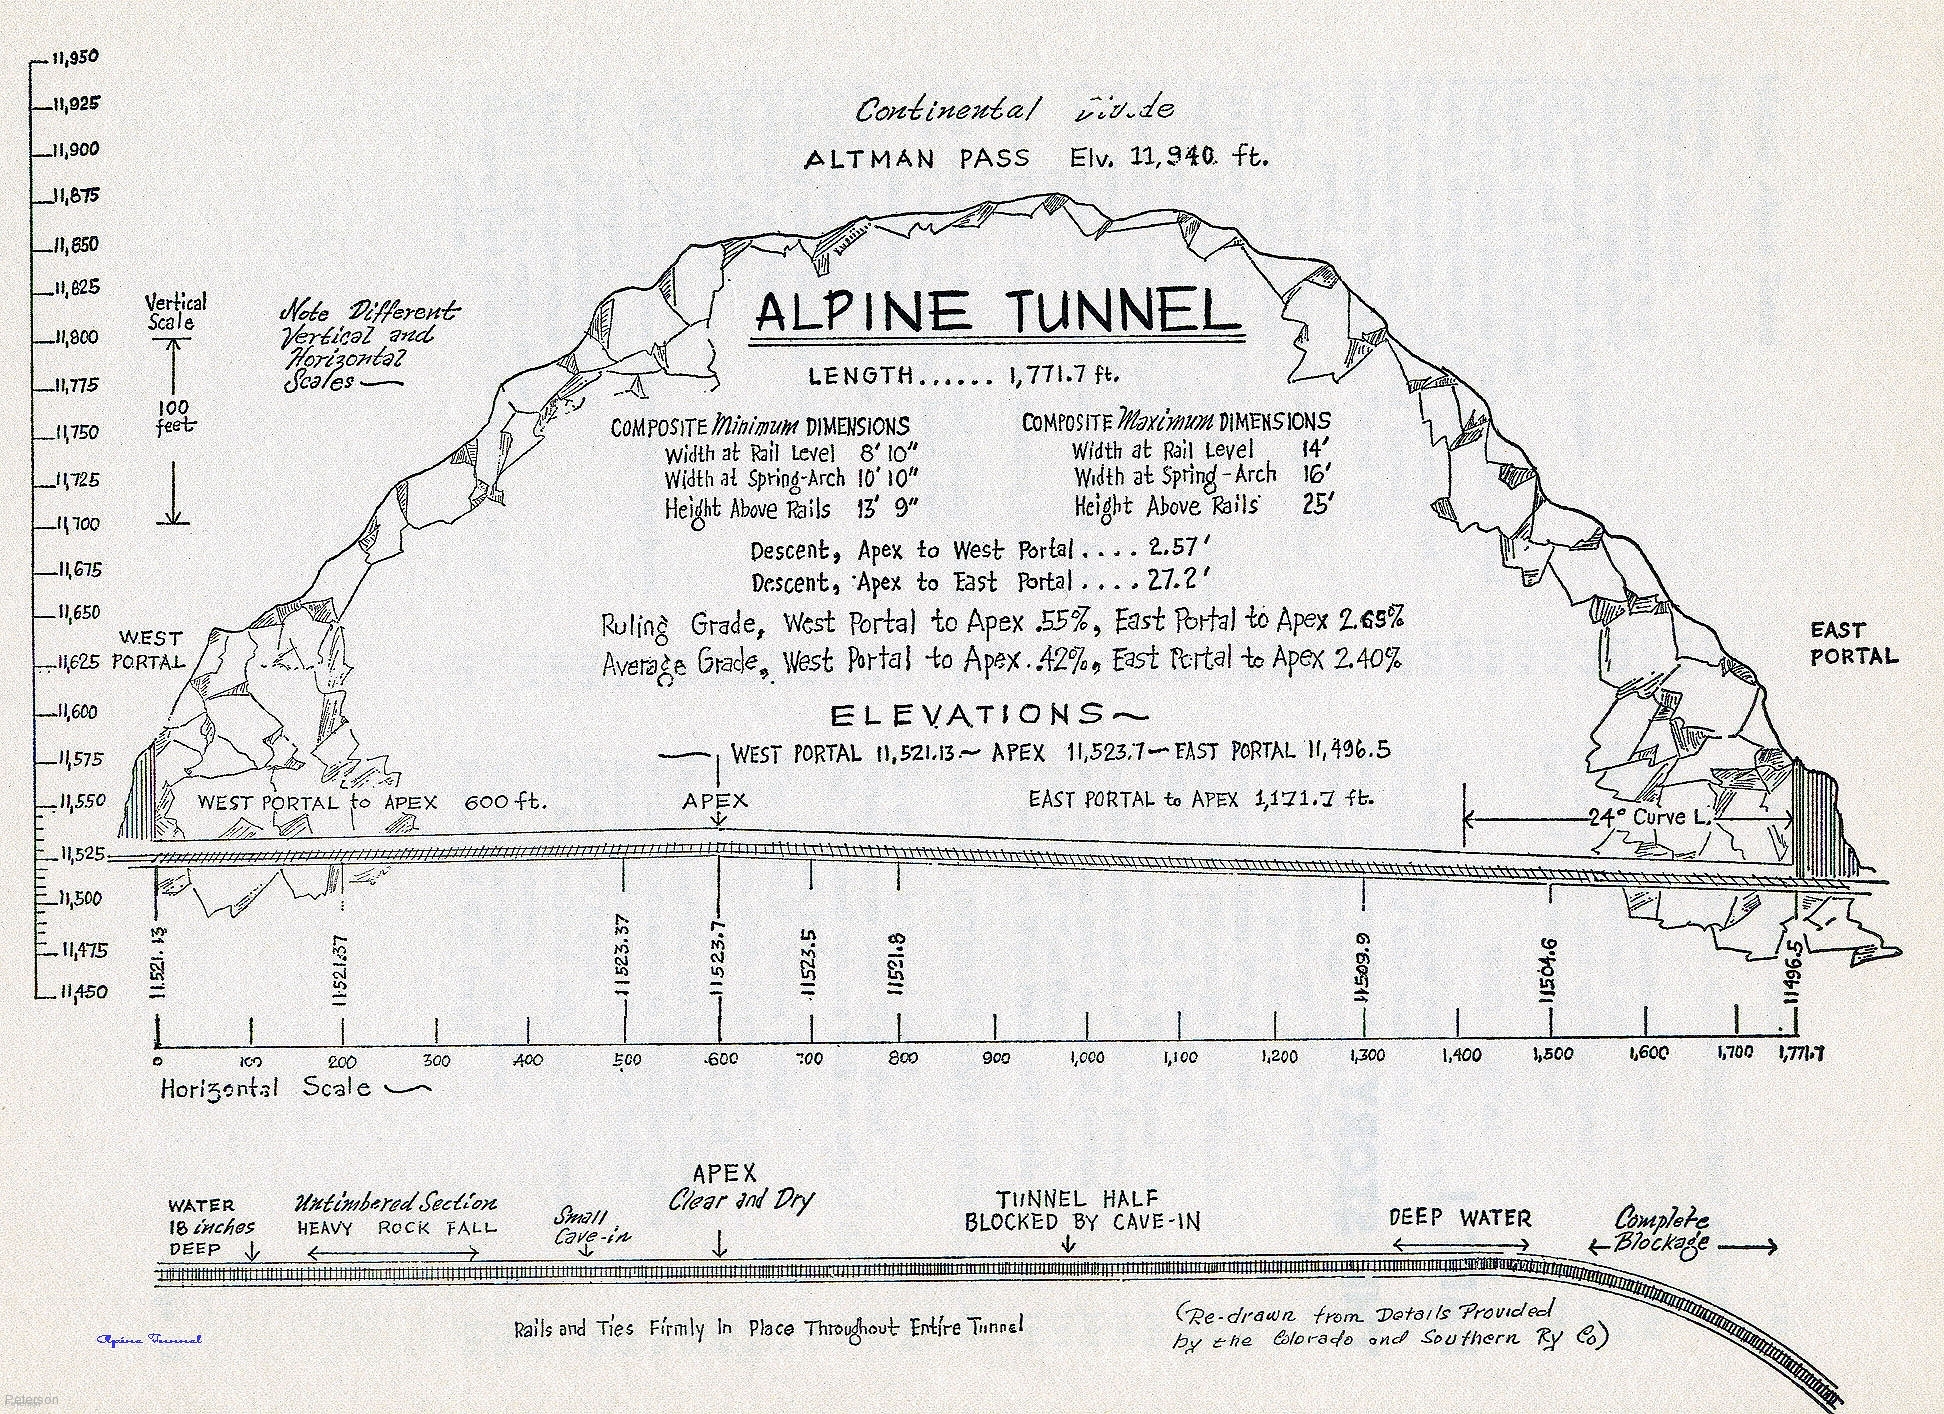 11,950
11,925
11,900
11,875
11,850
11,825
11,800
11,775
11,750
11,725
11,700
11,675
11,650
11,625
11,600
11,575
11,550
11,525
11,500
11,475
11,450
Continental
ALTMAN PASS Elv. 11,940. ft.
Vertical
Scale
100
feet
Note Different
Vertical and
Horizontal
Scales
ALPINE TUNNEL
LENGTH...... 1,771.7 ft.
COMPOSITE Minimum DIMENSIONS
Width at Rail Level 8' 10"
Width at Spring-Arch 10' 10"
Height Above Rails 13' 9"
COMPOSITE Maximum DIMENSIONS
Width at Rail Level 14'
Width at Spring-Arch 16'
Height Above Rails 25'
Descent, Apex to West Portal.... 2.57'
Descent, Apex to East Portal.... 27.2'
Ruling Grade, West Portal to Apex .55%, East Portal to Apex
Average Grade, West Portal to Apex .42%, East Portal to Apex 2.40%
WEST
PORTAL
EAST
PORTAL
ELEVATIONS~
WEST PORTAL 11,521.13 ~ APEX 11,523.7 ~ EAST PORTAL 11,496.5
WEST PORTAL to APEX 600 ft.
APEX
EAST PORTAL to APEX 1,171.7 ft.
24° Curve L.
11521.13
11521.37
11523.37
11523.7
11523.5
11521.8
11509.9
11504.6
11496.5
0 100 200 300 400 500 600 700 800 900 1,000 1,100 1,200 1,300 1,400 1,500 1,600 1,700 1,771.7
Horizontal Scale
WATER
18 inches
DEEP
Untimbered Section
HEAVY ROCK FALL
Small
Cave-in
APEX
Clear and Dry
TUNNEL HALF
BLOCKED BY CAVE-IN
DEEP WATER
Complete
Blockage
Rails and Ties Firmly In Place Throughout Entire Tunnel
(Re-drawn from Details Provided
by the Colorado and Southern Ry Co)
Alpine Tunnel
Peterson